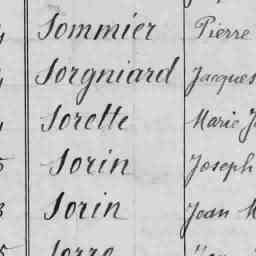 Sommier Pierre
Sorgniard Jacques
Sorette Marie J
Sorin Joseph
Sorin Jean M